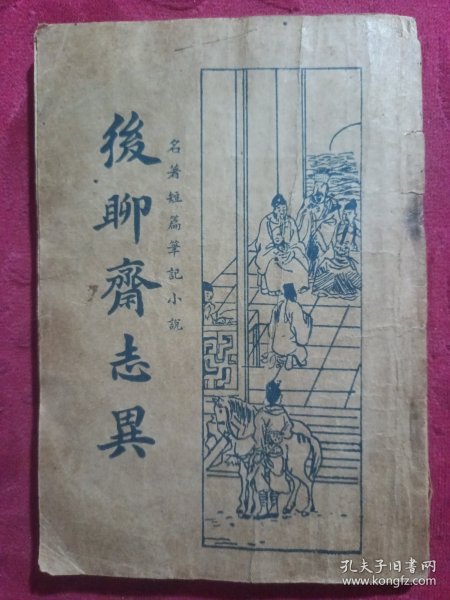 後聊齋志異
名著短篇筆記小說
孔夫子旧书网
www.kongfz.com